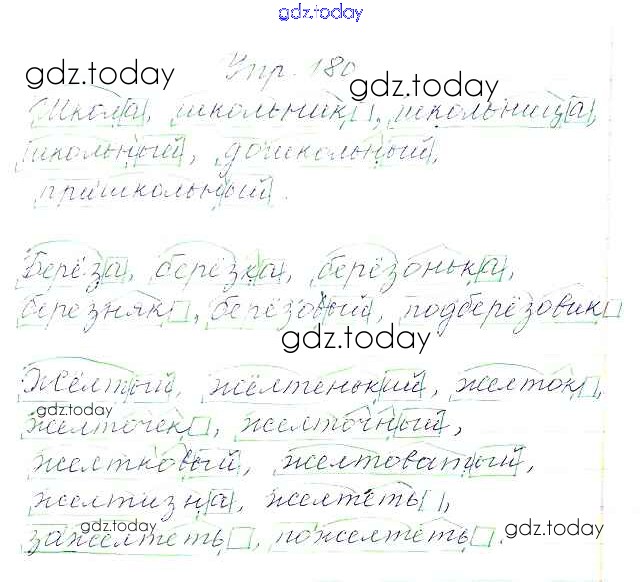 gdz.today
gdz.today
Упр. 180
gdz.today
Школа, школьник, школьница,
школьный, дошкольный,
пришкольный.
Берёза, берёзка, берёзонька,
березняк, берёзовый, подберёзовик
gdz.today
Жёлтый, жёлтенький, желток,
gdz.today
желточек, желточный,
желтковый, желтоватый,
желтизна, желтеть,
зажелтеть, пожелтеть.
gdz.today
gdz.today